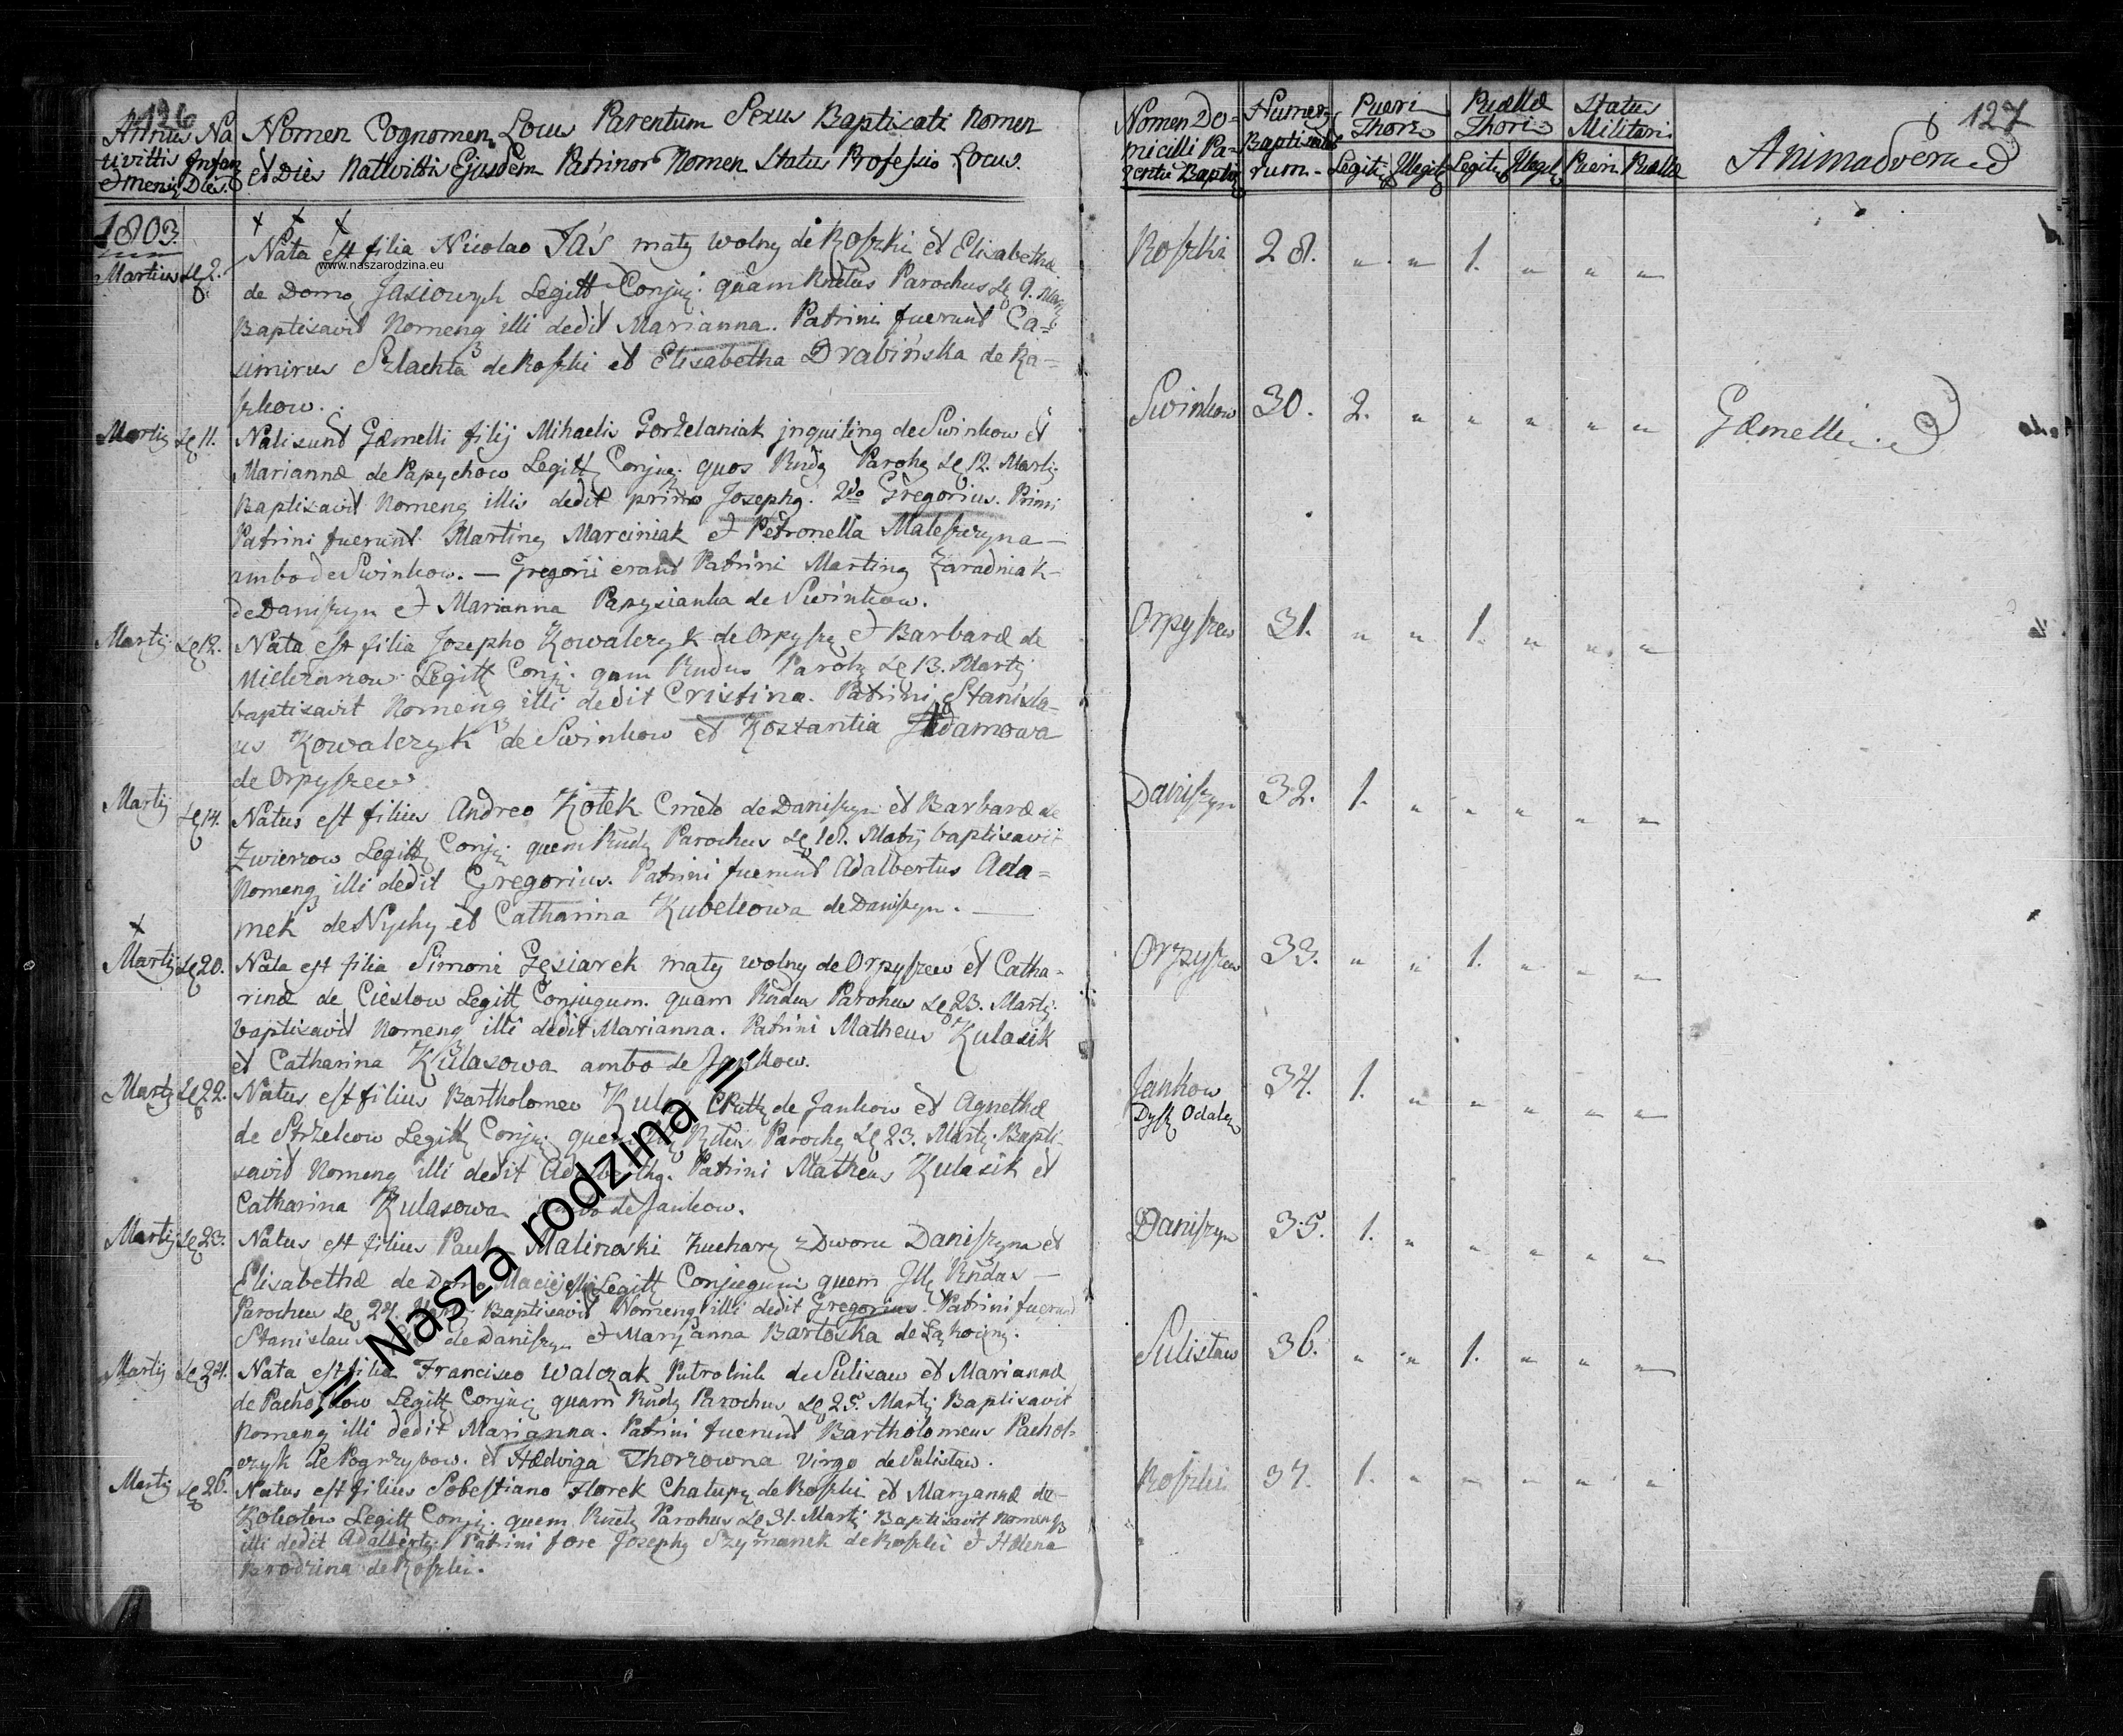 126
Annus Na
tivittis Infan
et Mens. Dies.
Nomen Cognomen, Locus Parentum Sexus Baptisati Nomen
et Dies Nattvittis Ejusdem Patrinor Nomen Status Professio Locus.
1803.
www.naszarodzina.eu
Martius
Nata est filia Nicolao Jaś mały wolny de Roszki et Elisabethæ
de Domo Jasiowych Legitt Conju: quam Parochus 9.
Baptisavit Nomenq illi dedit Marianna. Patrini fuerunt Ca=
simirus Szlachta de Roszki et Elisabetha Drabińska de Ra=
szkow.
Martij 11.
Nati sunt Gæmelli filij Mihaelis Gorzelaniak inquiling de Swinkow et
Mariannæ de Papychow Legitt Conjug. quos Rudg Parohg 12. Martij
Baptisavit Nomenq illis dedit primo Josephg. 2do Gregorius. Primi
Patrini fuerunt Marting Marciniak et Petronella Maleszyna —
ambo de Swinkow. — Gregorii erant Patrini Marting Zaradniak
de Daniszyn et Marianna Papysianka de Swinkow.
Martij 12.
Nata est filia Josepho Kowalczyk de Orpysze et Barbaræ de
Legitt Conj: qam Rudus Parohg 13. Martij
baptisavit Nomenq illi dedit Cristina. Patrini Stanisla=
us Kowalczyk de Swinkow et Kostantia Adamowa
de Orpyszew
Martij 14.
Natus est filius Andreo Kotek Cmeto de Daniszyn et Barbaræ de
Zwierzow Legitt Conju: quem Rudg Parochus 18. Martij baptisavit
Nomenq illi dedit Gregorius. Patrini fuerunt Adalbertus Ada=
mek de Nychy et Catharina Kubelowa de Daniszyn. —
Martij 20.
Nata est filia Simoni Gęsiarek mały wolny de Orpyszew et Catha=
rinæ de Cieslow Legitt Conjugum. quam Rudus Parohus 23. Martij.
baptisavit Nomenq illi dedit Marianna. Patrini Matheus Kulasik
et Catharina Kulasowa ambo de Jankow.
Martij 22.
Natus est filius Bartholomeo de Jankow et Agnethæ
de Strzelcow Legitt Conju: Parochg 23. Martij. Bapti=
savit Nomenq illi dedit Patrini Matheus Kulasik et
Catharina Kulasowa de Jankow.
Martij 23.
Natus est filius Malinoski Kucharz z Dworu Daniszyna et
Elisabethæ de Domo Legitt Conjugum quem Rudas —
Parochus Baptisavit Nomenq illi dedit Gregorius. Patrini fuerunt
Stanislaus de Daniszyn et Maryanna Bartoska de
Martij 24.
Nata est filia Francisco Walczak de Sulisaw et Mariannæ
Legitt Conjug quam Rudg Parochus 25. Martij Baptisavit
Nomenq illi dedit Marianna. Patrini fuerunt Bartholomeus Pachol=
czyk de Pogrzybow. et Hædwiga Thorzowna Virgo de Sulistaw.
Martij 26.
Natus est filius Sobestiano Florek Chalupg de Roszki et Maryannæ de —
Legitt Conju: quem Parohus 31. Martij Baptisavit Nomenq
illi dedit Adalbertg. Patrini fore Josephg Szymanek de Roszki et Hælena
Brodzina de Roszki.
" Nasza rodzina "
127
Nomen Do=
micilli Pa=
rentu Baptis
Numerg
Baptisato
rum.
Pueri
Thori
Legiti Illegiti
Puellæ
Thori
Legiti Illegiti
Status
Militari
Pueri Puellæ
Animadversa
Roszki 28. " " 1. " " "
Swinkow 30. 2. " " " " " Gæmelli.
Orpyszew 31. " " 1. " " "
Daniszyn 32. 1. " " " " "
Orpyszew 33. " " 1. " " "
Jankow 34. 1. " " " " "
Daniszyn 35. 1. " " " " "
Sulistaw 36. " " 1. " " "
Roszki 37. 1. " " " " "